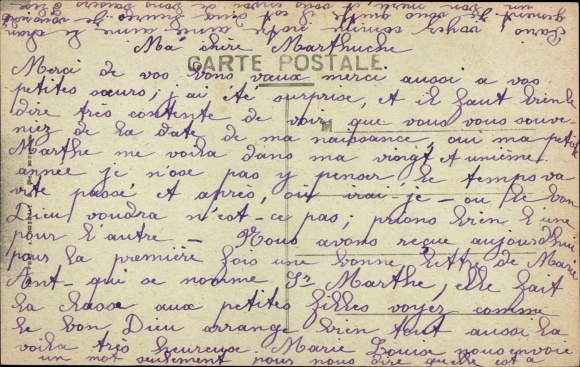 Ma chère Marthuche
CARTE POSTALE.
Merci de vos bons vœux merci aussi a vos
petites sœurs; j'ai été surprise, et il faut bien le
dire très contente de voir que vous vous souve-
niez de la date de ma naissance, oui ma petite
Marthe me voila dans ma vingt et unième
année je n'ose pas y penser, le temps va
vite passé et après, ou irai-je - ou le bon
Dieu voudra n'est-ce pas; prions bien l'une
pour l'autre - Nous avons reçue aujourd'hui
pour la première fois une bonne lettre de Marie
Ant- qui se nomme Sr Marthe, elle fait
la classe aux petites filles voyez comme
le bon Dieu arrange bien tout aussi la
voila très heureuse. Marie Louise nous envoie
un mot seulement pour nous dire qu'elle est a